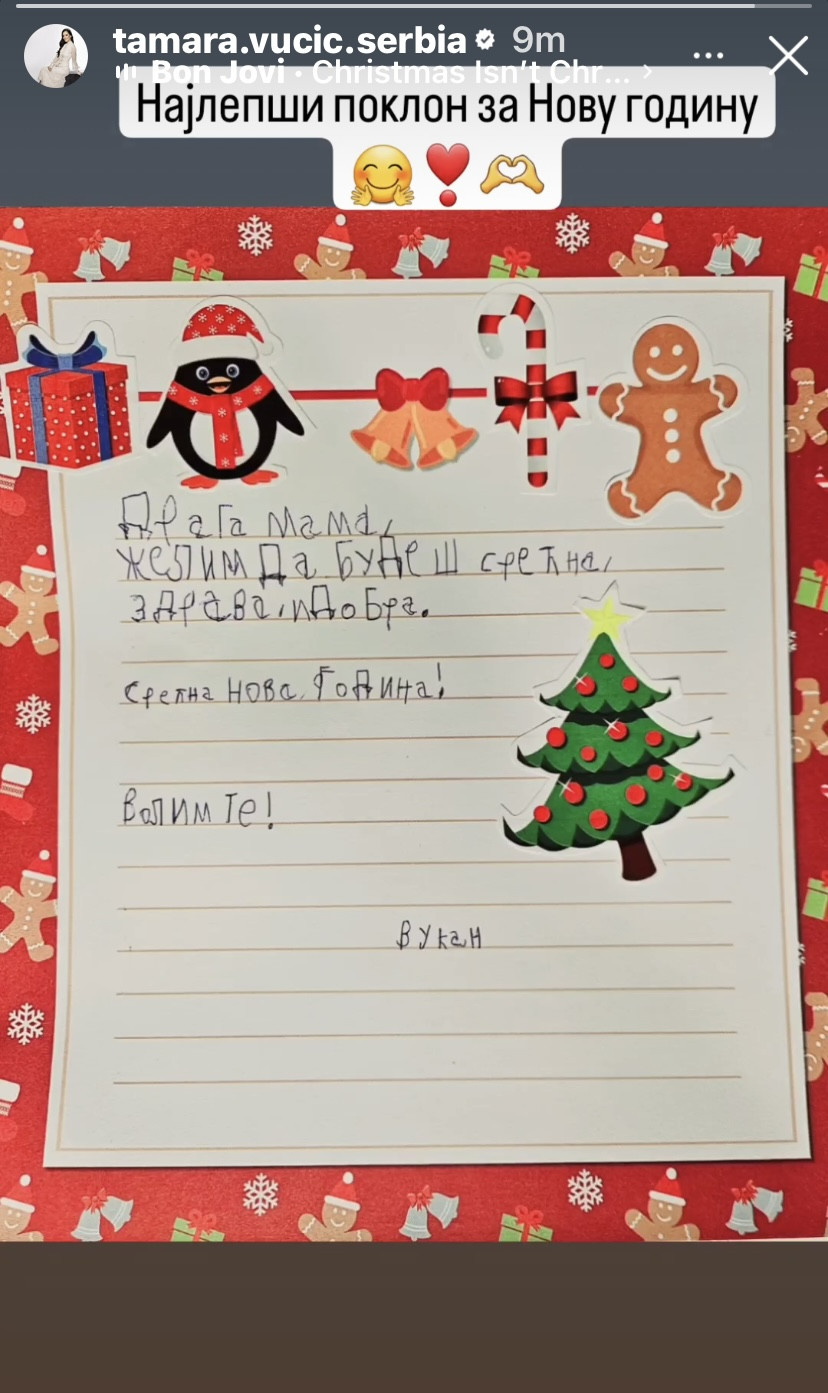 tamara.vucic.serbia 9m
Bon Jovi · Christmas Isn't Chr...
Најлепши поклон за Нову годину
Драга мама,
желим да будеш срећна,
здрава, и добра.
Срећна Нова Година!
Волим те!
Вукан